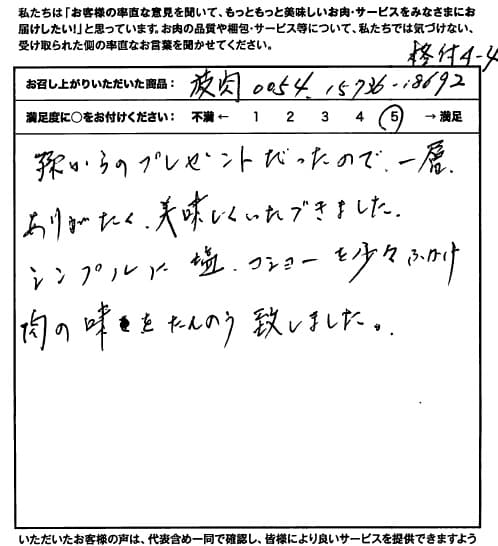 私たちは「お客様の率直な意見を聞いて、もっともっと美味しいお肉・サービスをみなさまにお
届けしたい!」と思っています。お肉の品質や梱包・サービス等について、私たちでは気づけない、
受け取られた側の率直なお言葉を聞かせてください。
格付4-4
お召し上がりいただいた商品： 阪肉 0054. 15736-18692
満足度に○をお付けください： 不満 ← 1 2 3 4 5 → 満足
からのプレゼントだったので、一層、
ありがたく、美味しくいただきました。
シンプルに塩、コショーを少々ふりかけ
肉の味をたんのう致しました。
いただいたお客様の声は、代表含め一同で確認し、皆様により良いサービスを提供できますよう